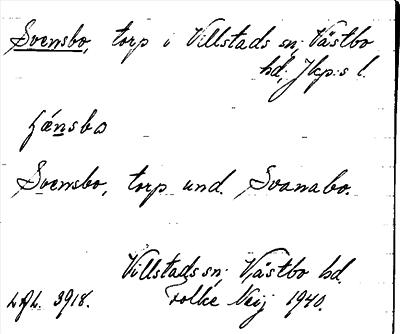 Svensbo, torp i Villstads sn; Västbo
hd; Jkp:s l.
Svensbo, torp und. Svanabo.
Villstads sn; Västbo hd.
LAL. 3918. Folke Neij 1940.